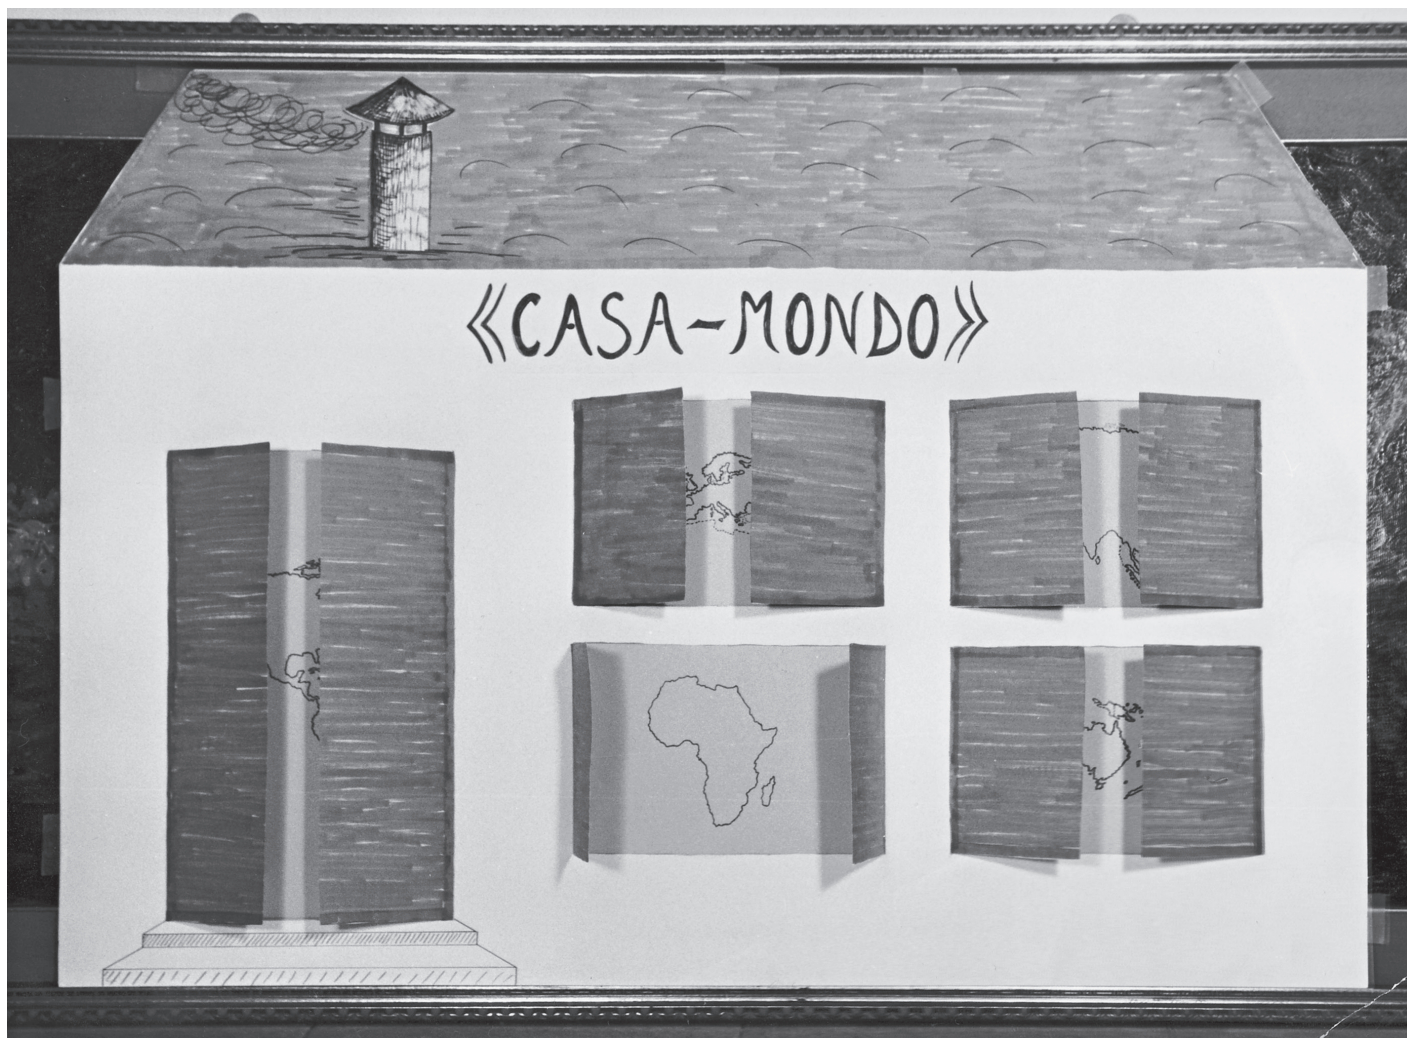 «CASA-MONDO»